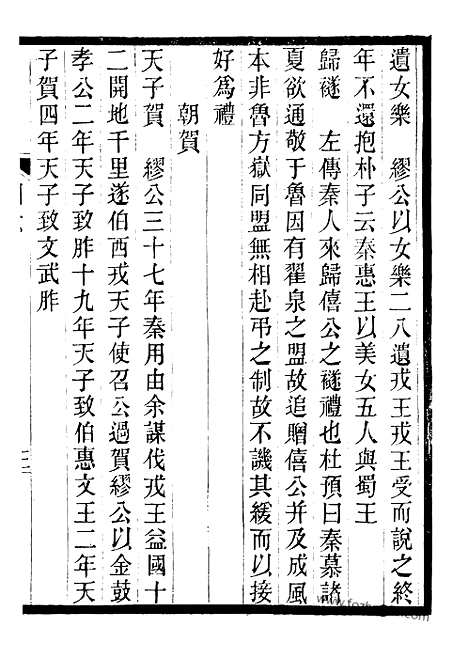 遺女樂　繆公以女樂二八遺戎王戎王受而說之終
年不還抱朴子云秦惠王以美女五人與蜀王
歸襚　左傳秦人來歸僖公之襚禮也杜預曰秦慕諸
夏欲通敬于魯因有翟泉之盟故追贈僖公并及成風
本非魯方嶽同盟無相赴弔之制故不譏其緩而以接
好爲禮
朝賀
天子賀　繆公三十七年秦用由余謀伐戎王益國十
二開地千里遂伯西戎天子使召公過賀繆公以金鼓
孝公二年天子致胙十九年天子致伯惠文王二年天
子賀四年天子致文武胙